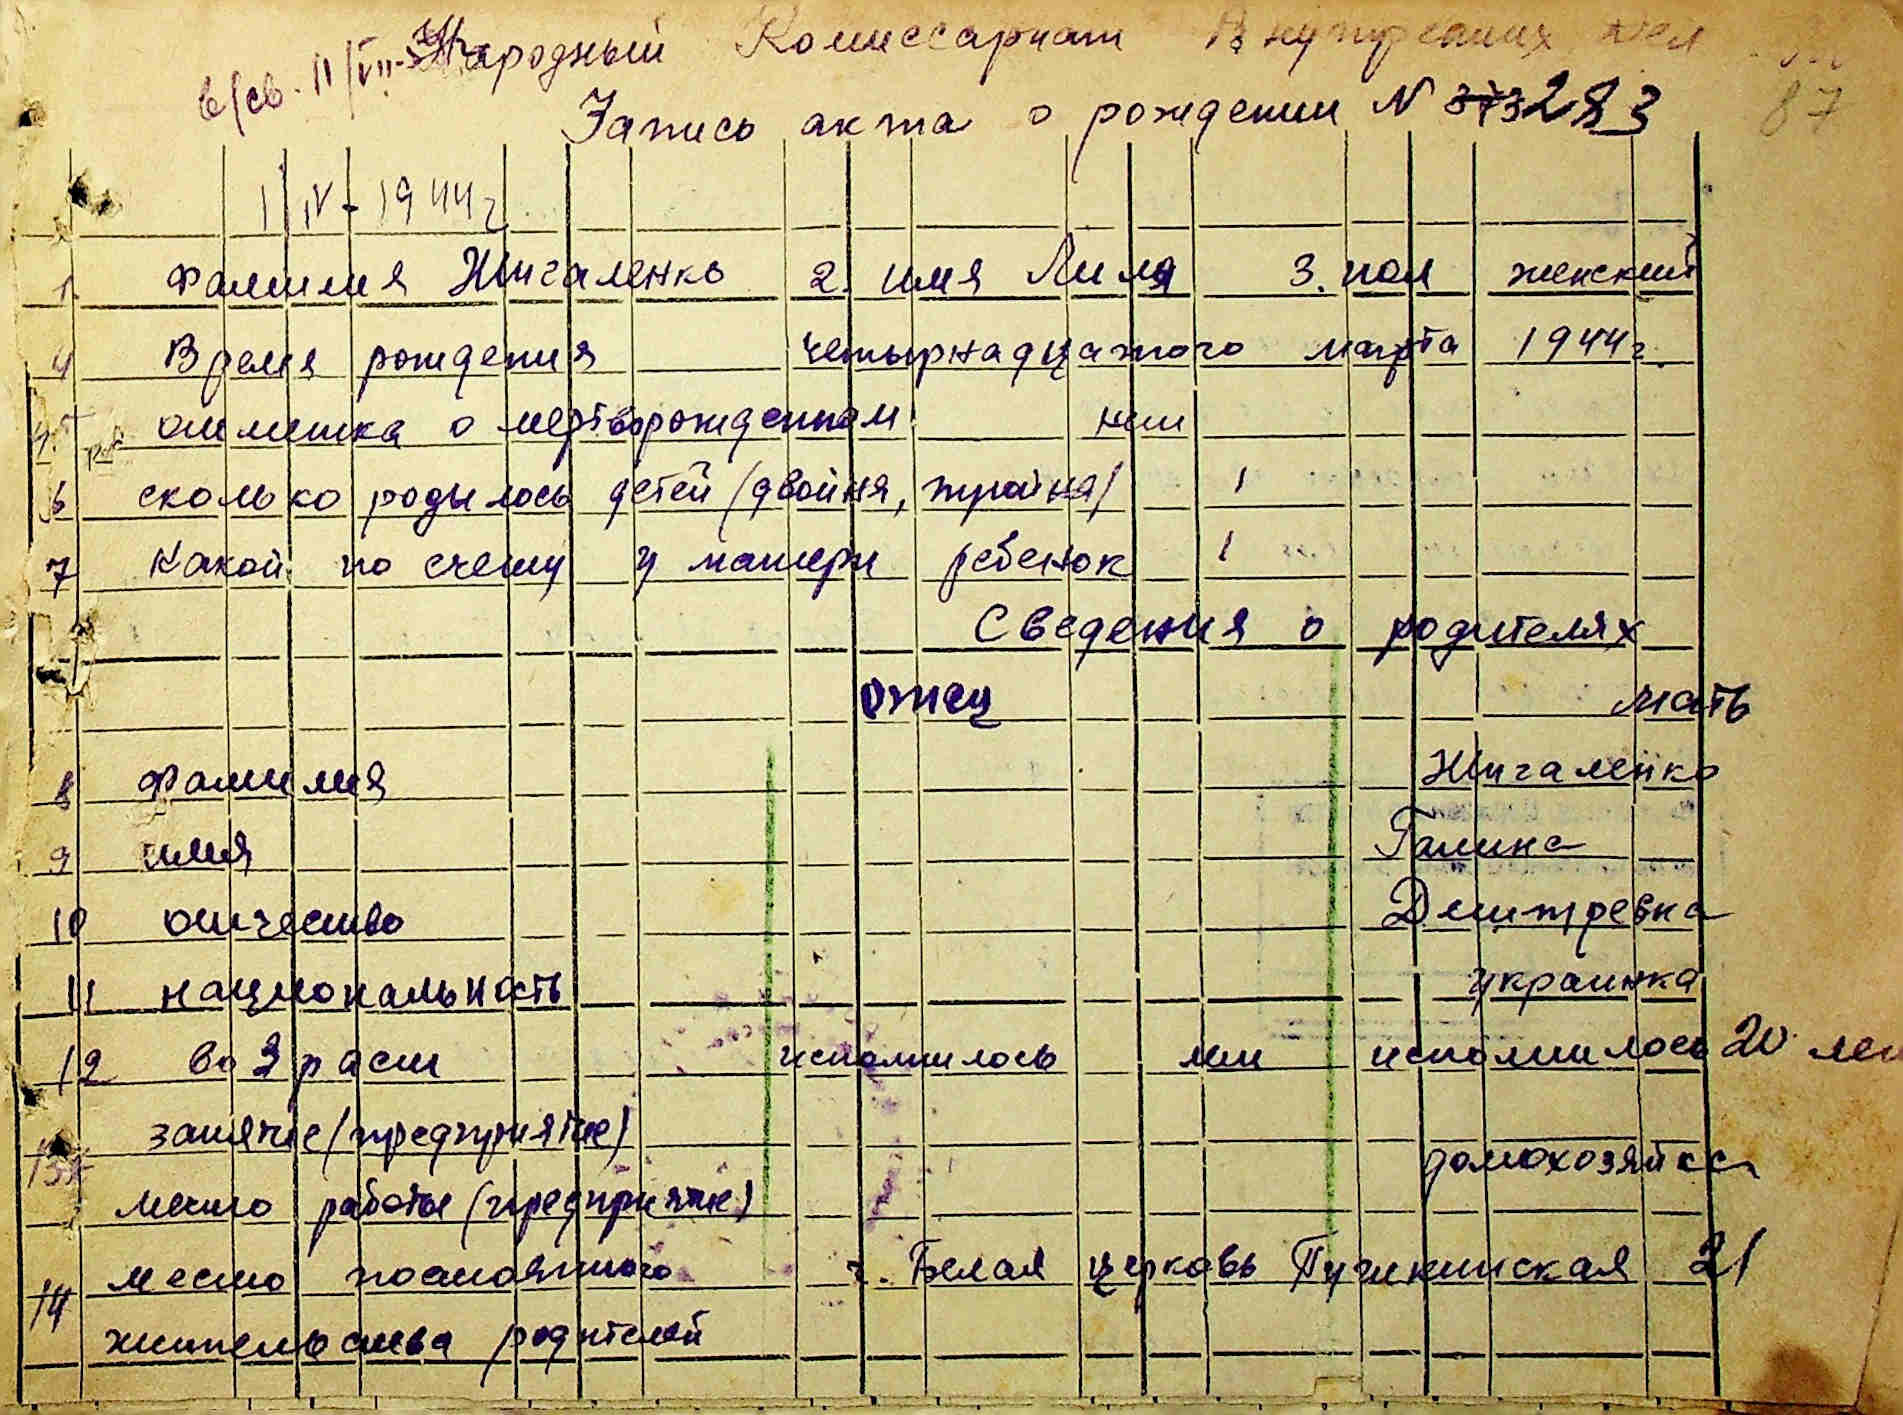 Народный Комиссариат Внутренних дел
в/св. 11/VII-
Запись акта о рождении N 373 283
87
1/IV - 1944 г
1 Фамилия Жигаленко 2. имя Лиля 3. пол женский
4 Время рождения четырнадцатого марта 1944 г.
5 отметка о мертворожденном нет
6 сколько родылось детей (двойня, тройня) 1
7 Какой по счету у матери ребенок 1
Сведения о родителях
отец мать
8 фамилия Жигаленко
9 имя Галина
10 отчество Дмитревна
11 национальность украинка
12 возраст исполнилось лет исполнилось 20 лет
13 занятие (предприятие) домохозяйка
место работы (предприятие)
14 место постоянного г. Белая церковь Пушкинская 21
жительства родителей